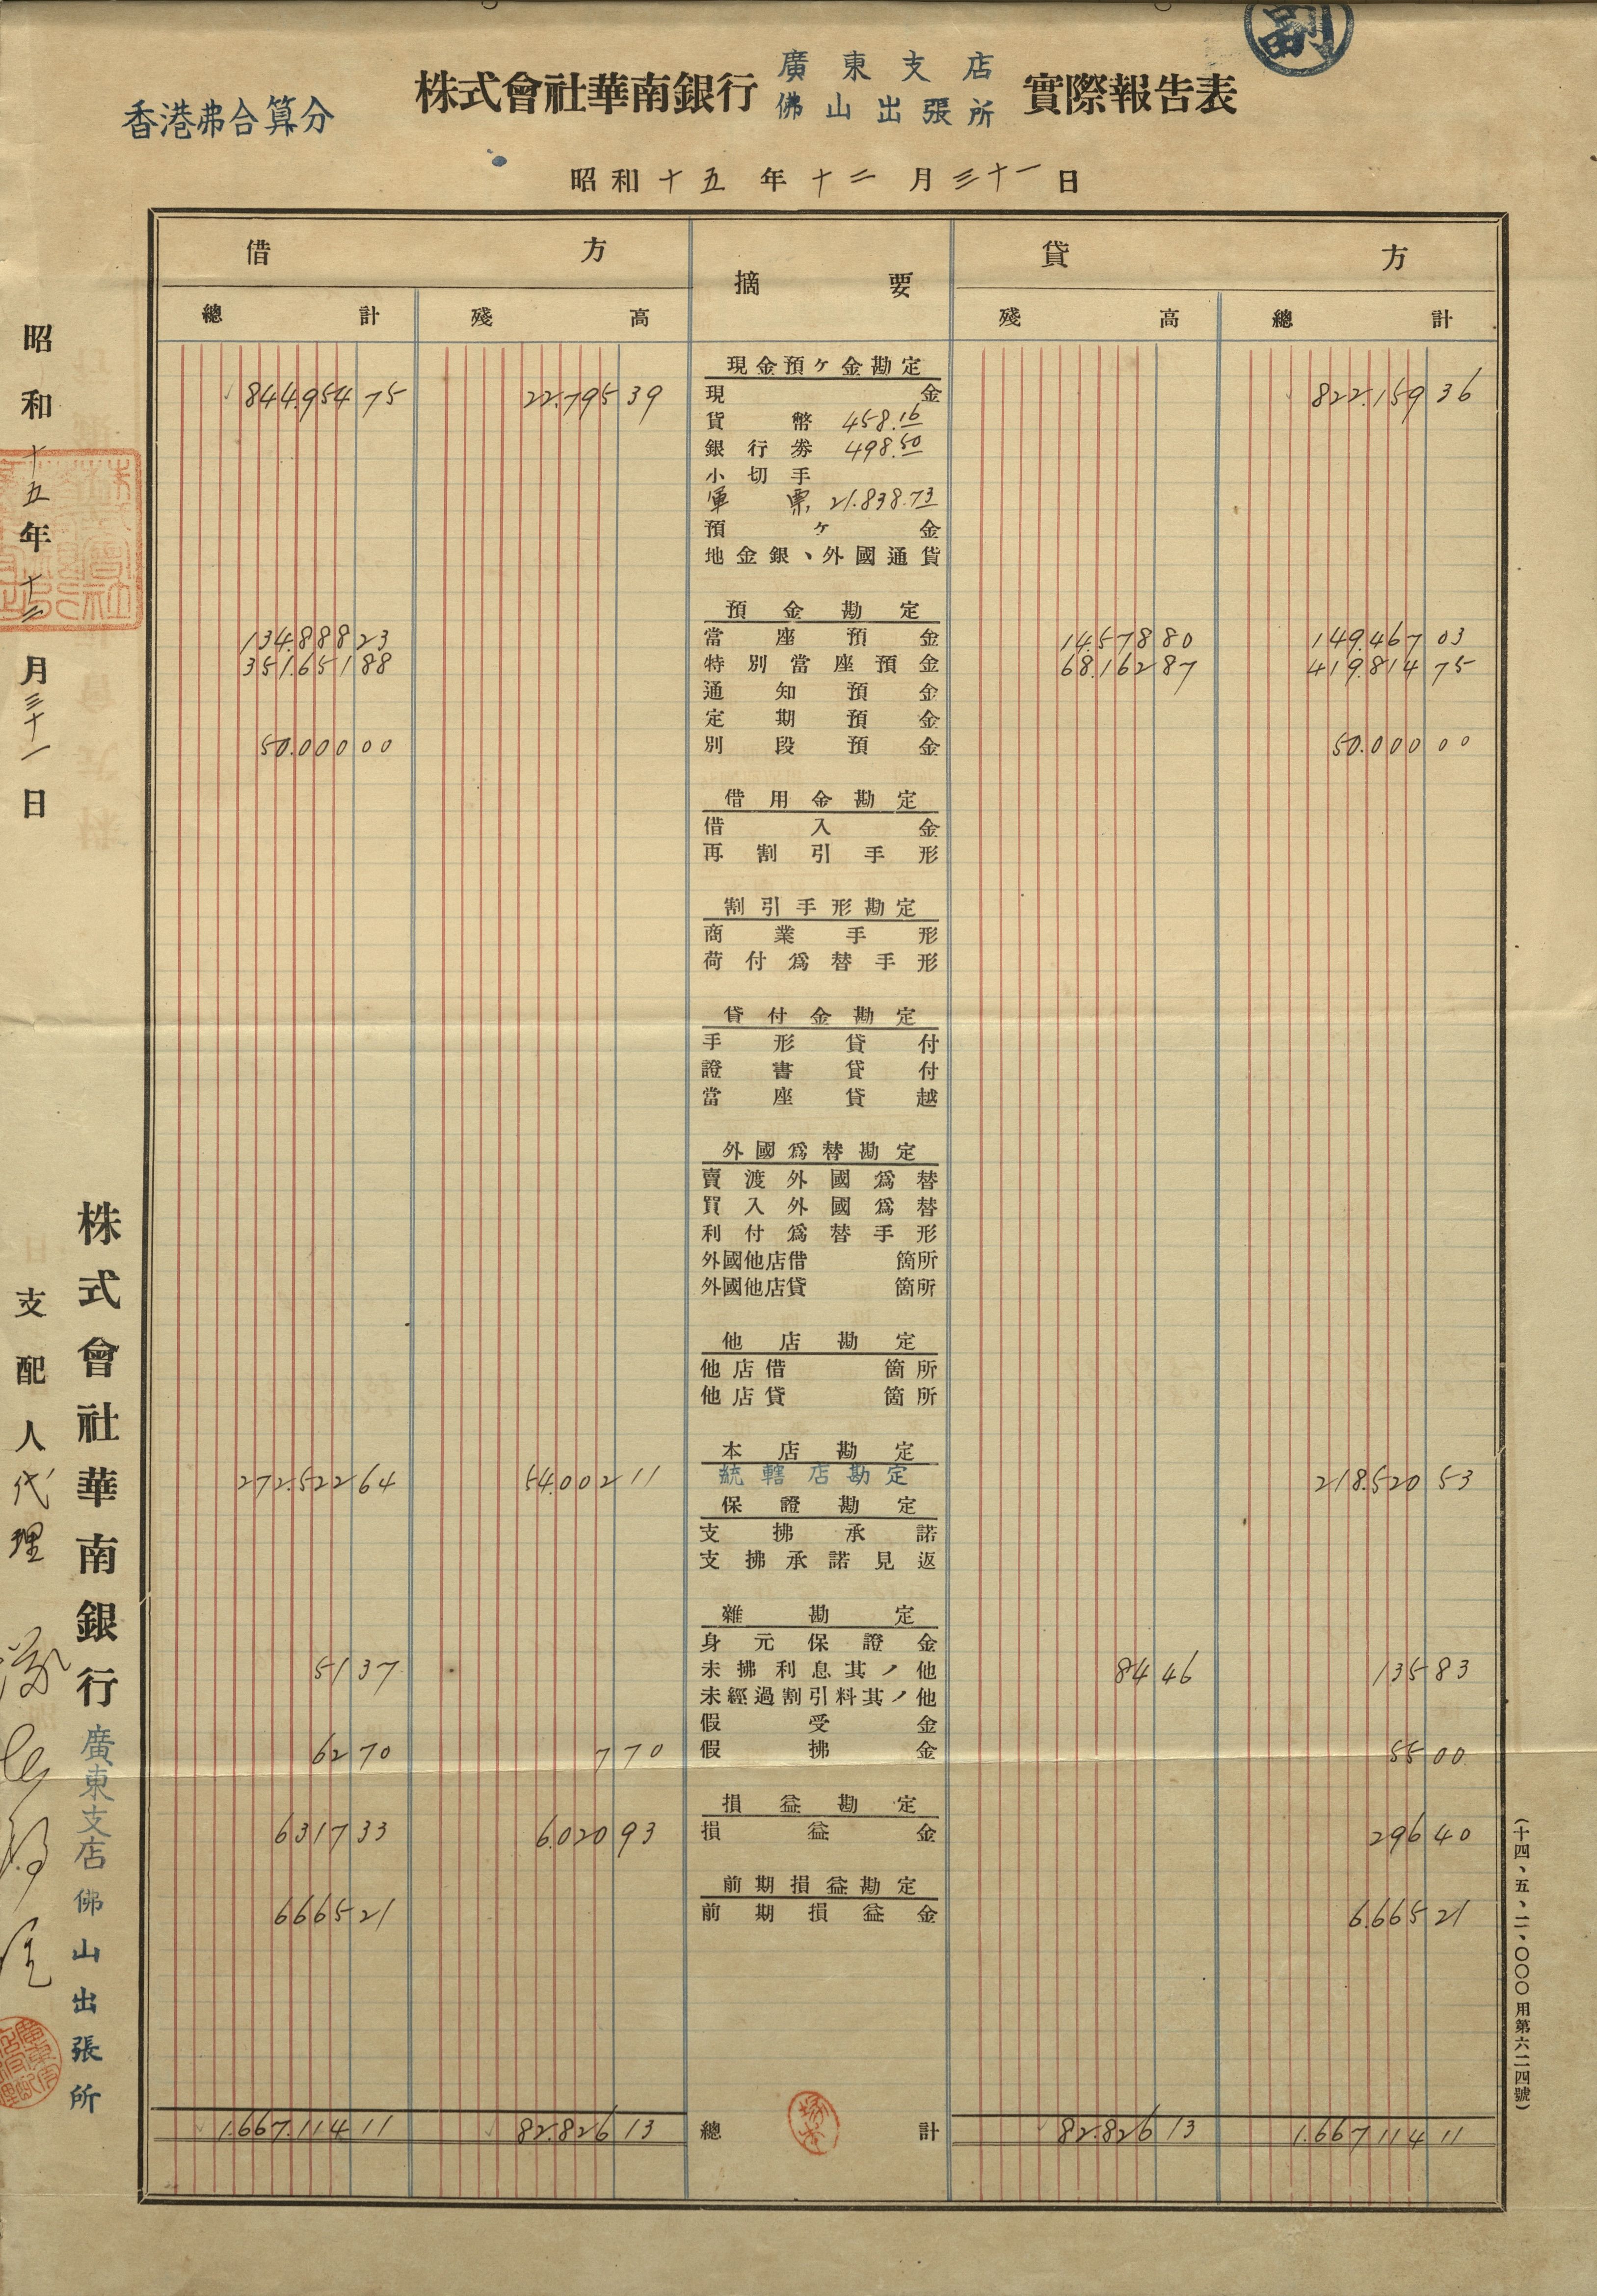 副
株式會社華南銀行 廣東支店 佛山出張所 實際報告表
香港弗合算分
昭和十五年十二月三十一日
借方 摘要 貸方
總計 殘高 殘高 總計
現金預ヶ金勘定
844.954 75 22.795 39 現金 822.159 36
貨幣 458.16
銀行券 498.50
小切手
軍票 21.838.73
預ヶ金
地金銀、外國通貨
預金勘定
134.888 23 當座預金 14.578 80 149.467 03
351.651 88 特別當座預金 68.162 87 419.814 75
通知預金
定期預金
50.000 00 別段預金 50.000 00
借用金勘定
借入金
再割引手形
割引手形勘定
商業手形
荷付爲替手形
貸付金勘定
手形貸付
證書貸付
當座貸越
外國爲替勘定
賣渡外國爲替
買入外國爲替
利付爲替手形
外國他店借 箇所
外國他店貸 箇所
他店勘定
他店借 箇所
他店貸 箇所
本店勘定
272.522 64 54.002 11 統轄店勘定 218.520 53
保證勘定
支拂承諾
支拂承諾見返
雜勘定
身元保證金
51 37 未拂利息其ノ他 84 46 135 83
未經過割引料其ノ他
假受金
62 70 7 70 假拂金 55 00
損益勘定
6317 33 6.020 93 損益金 296 40
前期損益勘定
6665 21 前期損益金 6.665 21
1.667.114 11 82.826 13 總計 82.826 13 1.667 114 11
昭和十五年十二月三十一日
株式會社華南銀行廣東支店佛山出張所
支配人代理
(十四、五、二、〇〇〇用第六二四號)